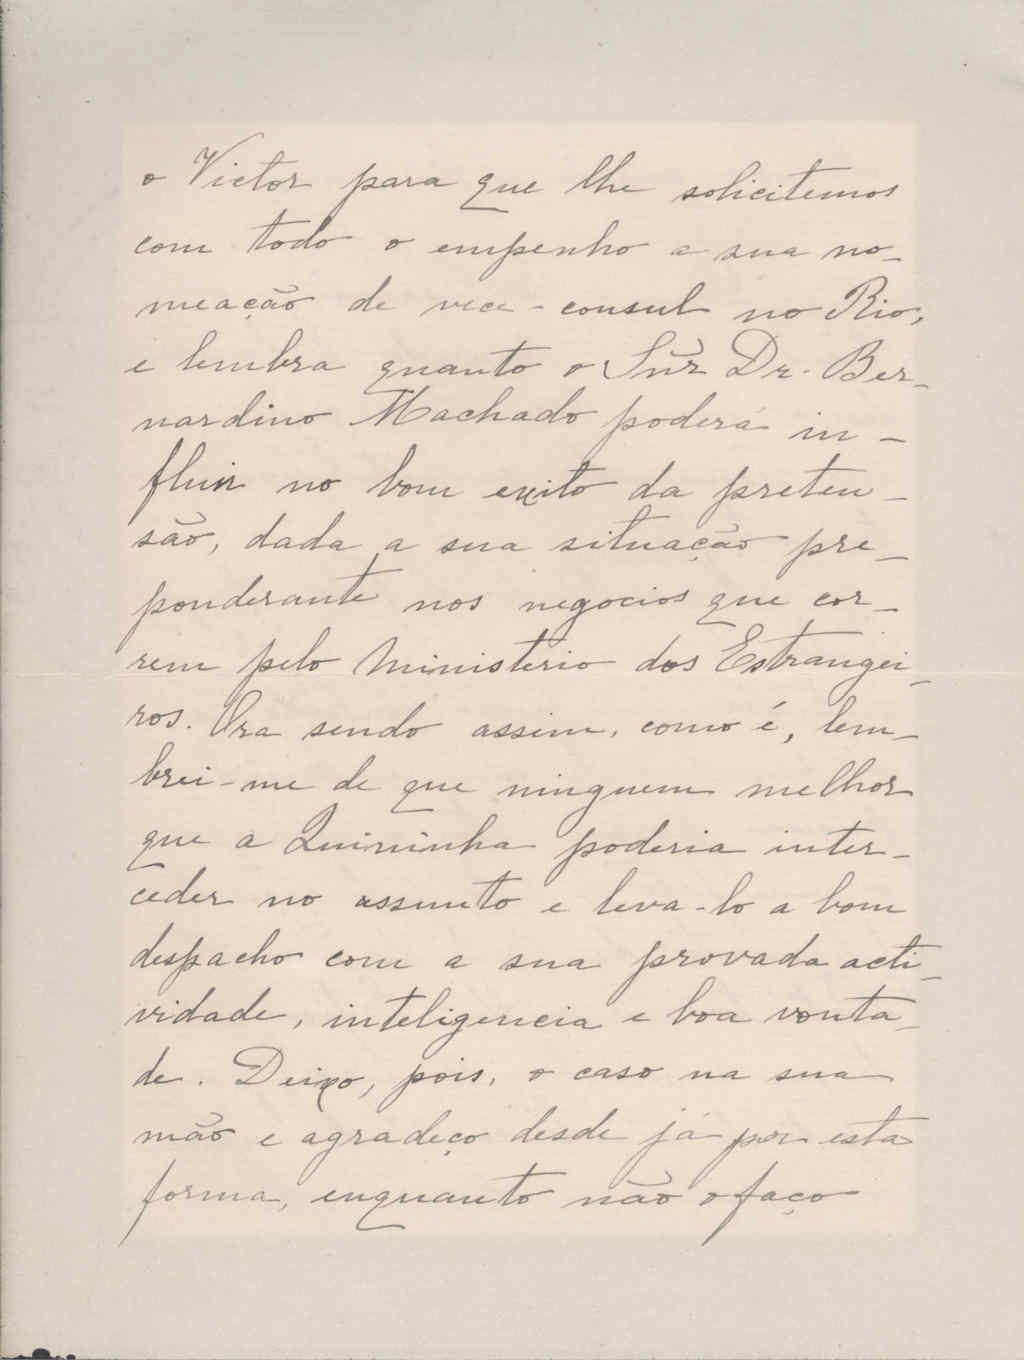 o Victor para que lhe solicitemos
com todo o empenho a sua no-
meação de vice-consul no Rio,
e lembra quanto o Snr̃ Dr. Ber-
nardino Machado poderá in-
fluir no bom exito da preten-
são, dada a sua situação pre-
ponderante nos negocios que cor-
rem pelo Ministerio dos Estrangei-
ros. Ora sendo assim, como é, lem-
brei-me de que ninguem melhor
que a Quininha poderia inter-
ceder no assunto e leva-lo a bom
despacho com a sua provada acti-
vidade, inteligencia e boa vonta-
de. Deixo, pois, o caso na sua
mão e agradeço desde já por esta
forma, enquanto não o faço